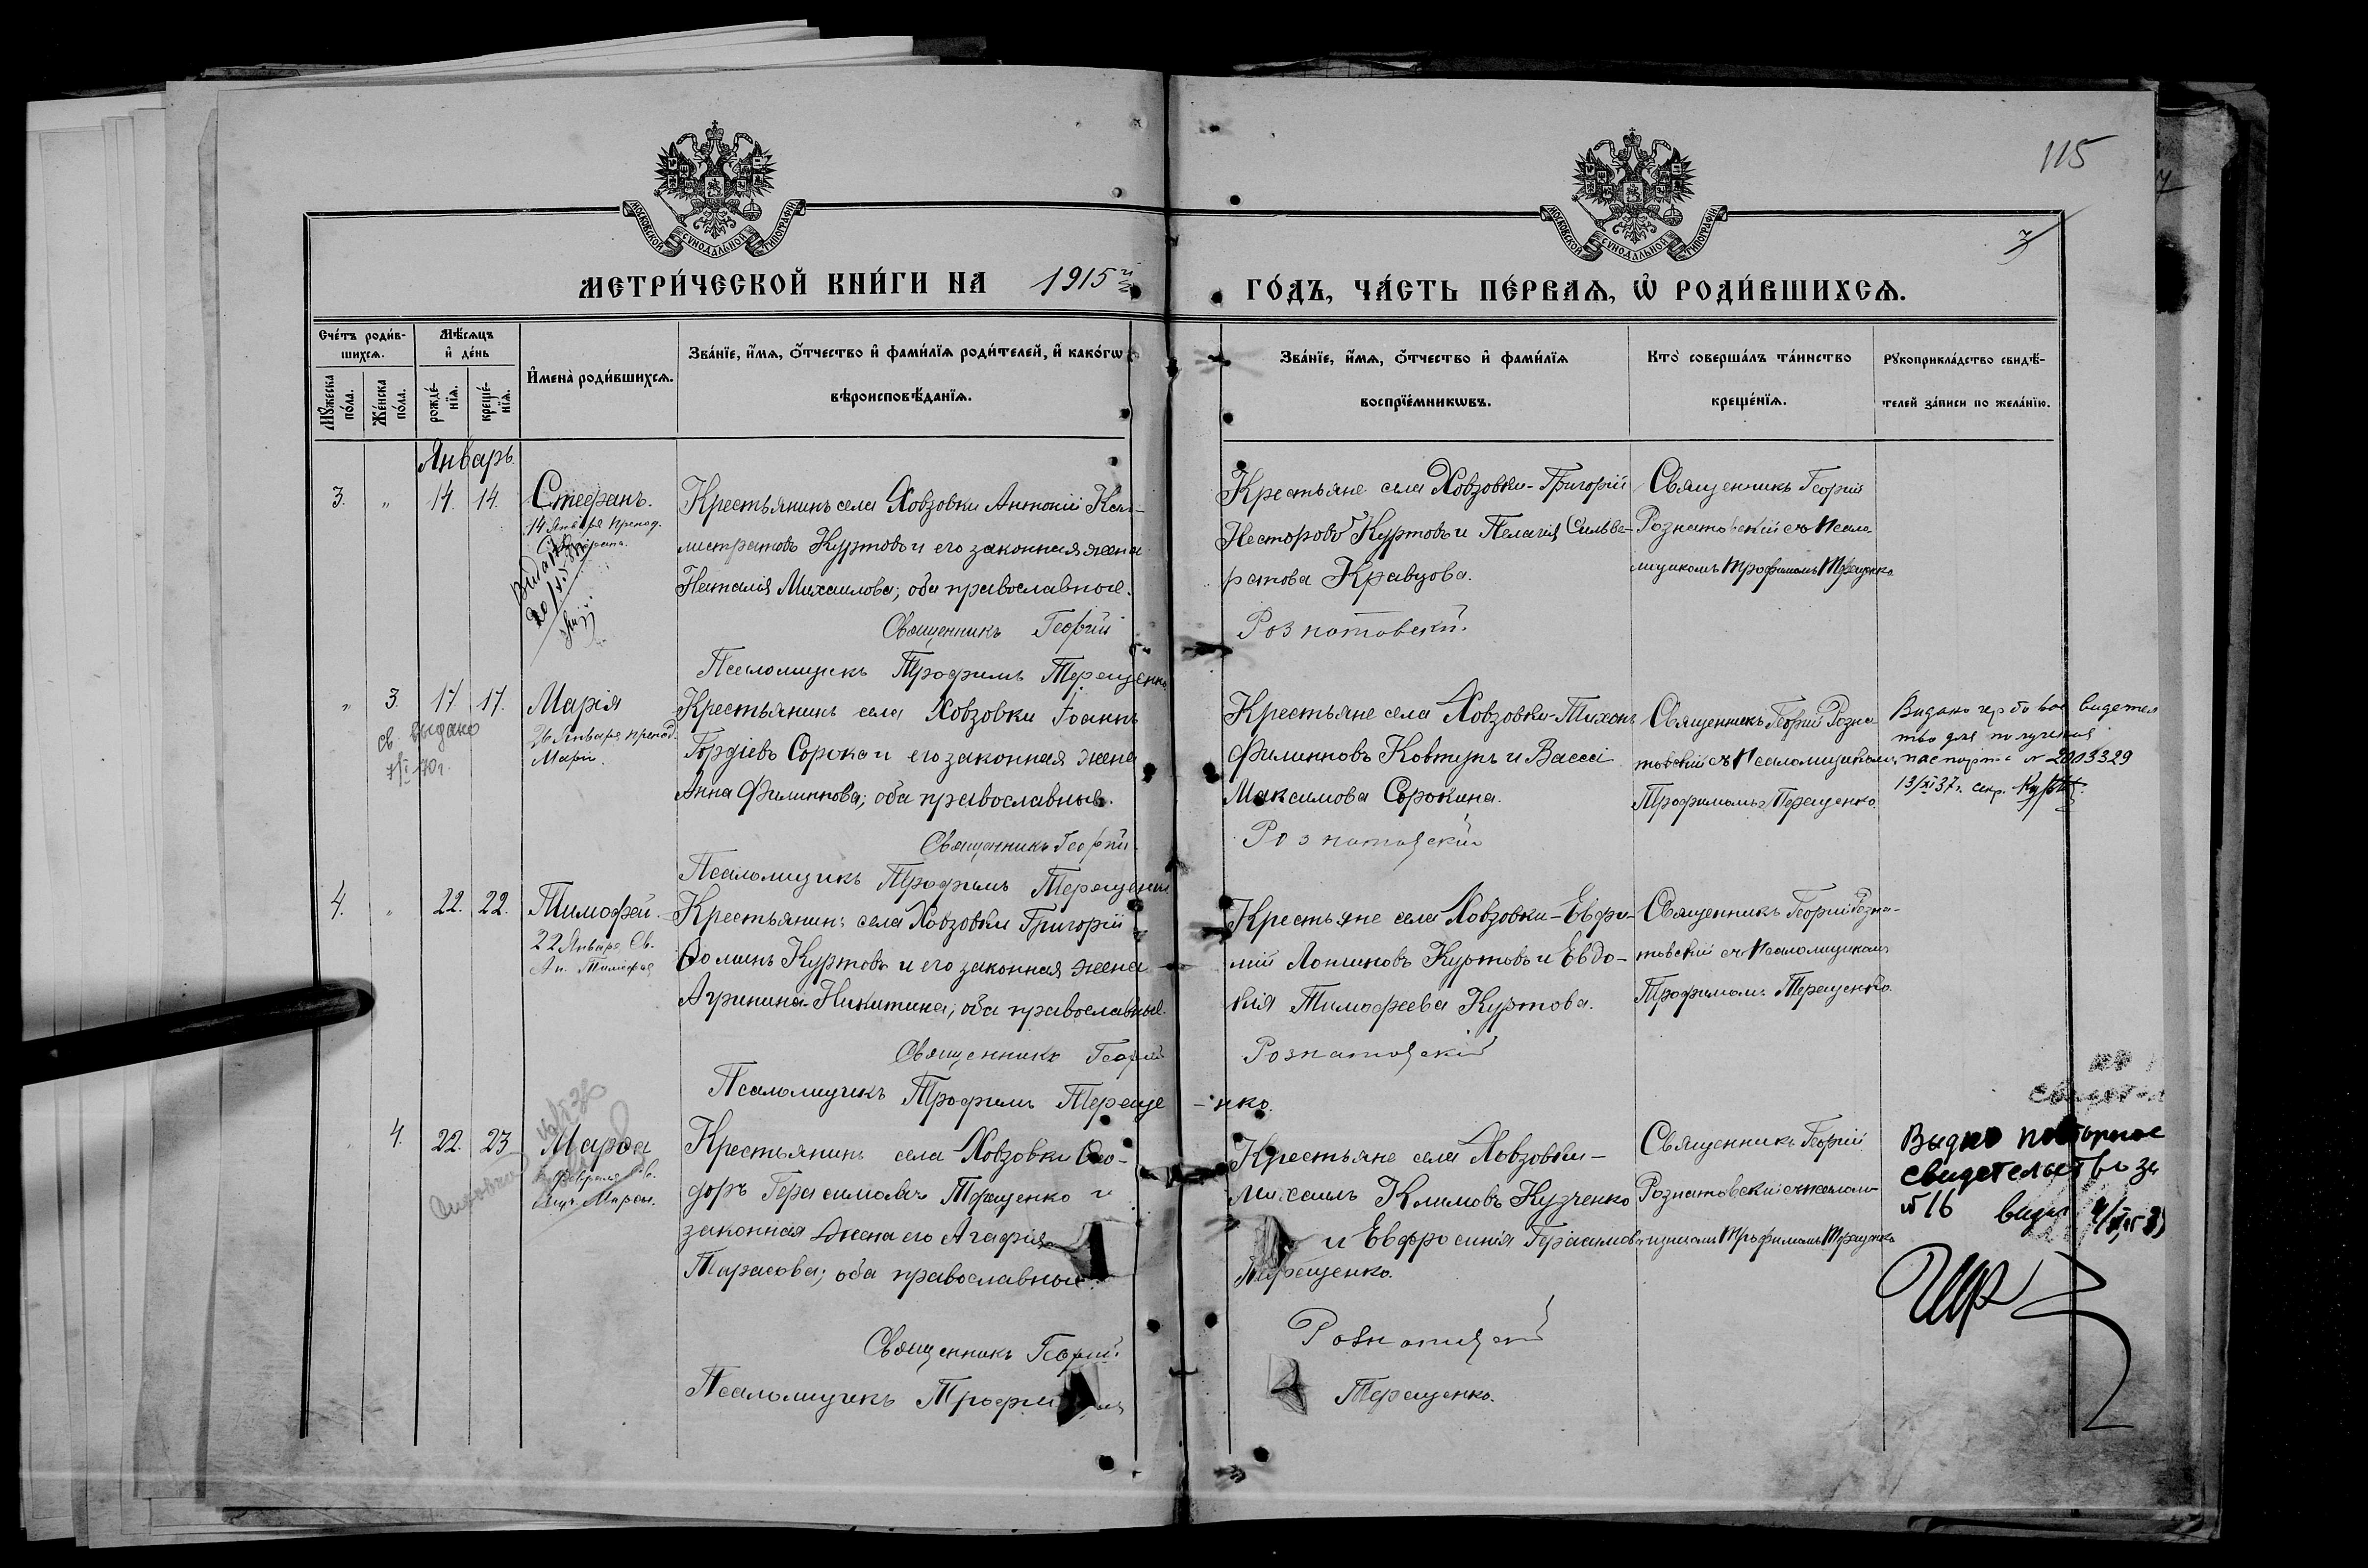 115
7
МОСКОВСКОЙ СѴНОДАЛЬНОЙ ТИПОГРАФІИ
МОСКОВСКОЙ СѴНОДАЛЬНОЙ ТИПОГРАФІИ
МЕТРИ́ЧЕСКОЙ КНИ́ГИ НА 1915й
ГО́ДЪ, ЧА́СТЬ ПЕ́РВАѦ, Ѽ РОДИ́ВШИХСѦ.
Сче́тъ роди́в-
шихсѧ.
Мѣ́сѧцъ
и҆ де́нь
Мꙋ́жеска по́ла.
Же́нска по́ла.
рожде́-
нїѧ.
креще́-
нїѧ.
И҆мена̀ роди́вшихсѧ.
Зва́нїе, и҆́мѧ, ѻ҆́тчество и҆ фами́лїѧ роди́телей, и҆ како́гѡ
вѣроисповѣ́данїѧ.
Зва́нїе, и҆́мѧ, ѻ҆́тчество и҆ фами́лїѧ
воспрїе́мникѡвъ.
Кто̀ соверша́лъ та́инство
креще́нїѧ.
Рꙋкоприкла́дство свидѣ́-
телей за́писи по жела́нїю.
Январь.
3. „ 14. 14. Стефанъ.
14 Января препод.
Выдано
Крестьянинъ села Ховзовки Антоній Кал-
листратовъ Куртовъ и его законная жена
Наталія Михаилова; оба православные.
Священникъ Георгій
Псаломщикъ Трофимъ Терещенко
Крестьяне села Ховзовки - Григорій
Несторовъ Куртовъ и Пелагія Сильве-
рстова Кравцова.
Розматовскій.
Священникъ Георгій
Розматовскій съ Псало-
мщикомъ Трофимомъ Терещенко
„ 3. 17 17. Марія
26 Января препод.
Маріи.
св. выдано
Крестьянинъ села Ховзовки Іоаннъ
Гордіевъ Сорока и его законная жена
Анна Филиппова; оба православные.
Священникъ Георгій
Псаломщикъ Трофимъ Терещенко
Крестьяне села Ховзовки - Тихонъ
Филипповъ Ковтунъ и Васса
Максимова Сорокина.
Розматовскій
Священникъ Георгій Розма-
товскій съ Псаломщикомъ
Трофимомъ Терещенко.
Видано
тво для получения
паспорта № 2003329
13/XI 37 г. секр.
4. „ 22. 22. Тимофей.
22 Января Св.
Ап. Тимофея
Крестьянинъ села Ховзовки Григорій
Ѳоминъ Куртовъ и его законная жена
Агрипина Никитина; оба православные.
Священникъ Георгій
Псаломщикъ Трофимъ Тереще-
нко.
Крестьяне села Ховзовки - Евфи-
мій Логиновъ Куртовъ и Евдо-
кія Тимофеева Куртова.
Розматовскій
Священникъ Георгій Розма-
товскій съ Псаломщикомъ
Трофимомъ Терещенко.
4. 22. 23 Марѳа
Крестьянинъ села Ховзовки Ѳео-
доръ Герасимовъ Терещенко и
законная жена его Агафія
Тарасова; оба православные.
Священникъ Георгій
Псаломщикъ Трофим
Крестьяне села Ховзовки -
Михаилъ Климовъ Кузченко
и Евфросинія Герасимова
Терещенко.
Розматовскій
Терещенко.
Священникъ Георгій
Розматовскій съ псалом-
щикомъ Трофимомъ Терещенко
Выдано повторное
свидетельство за
№ 16